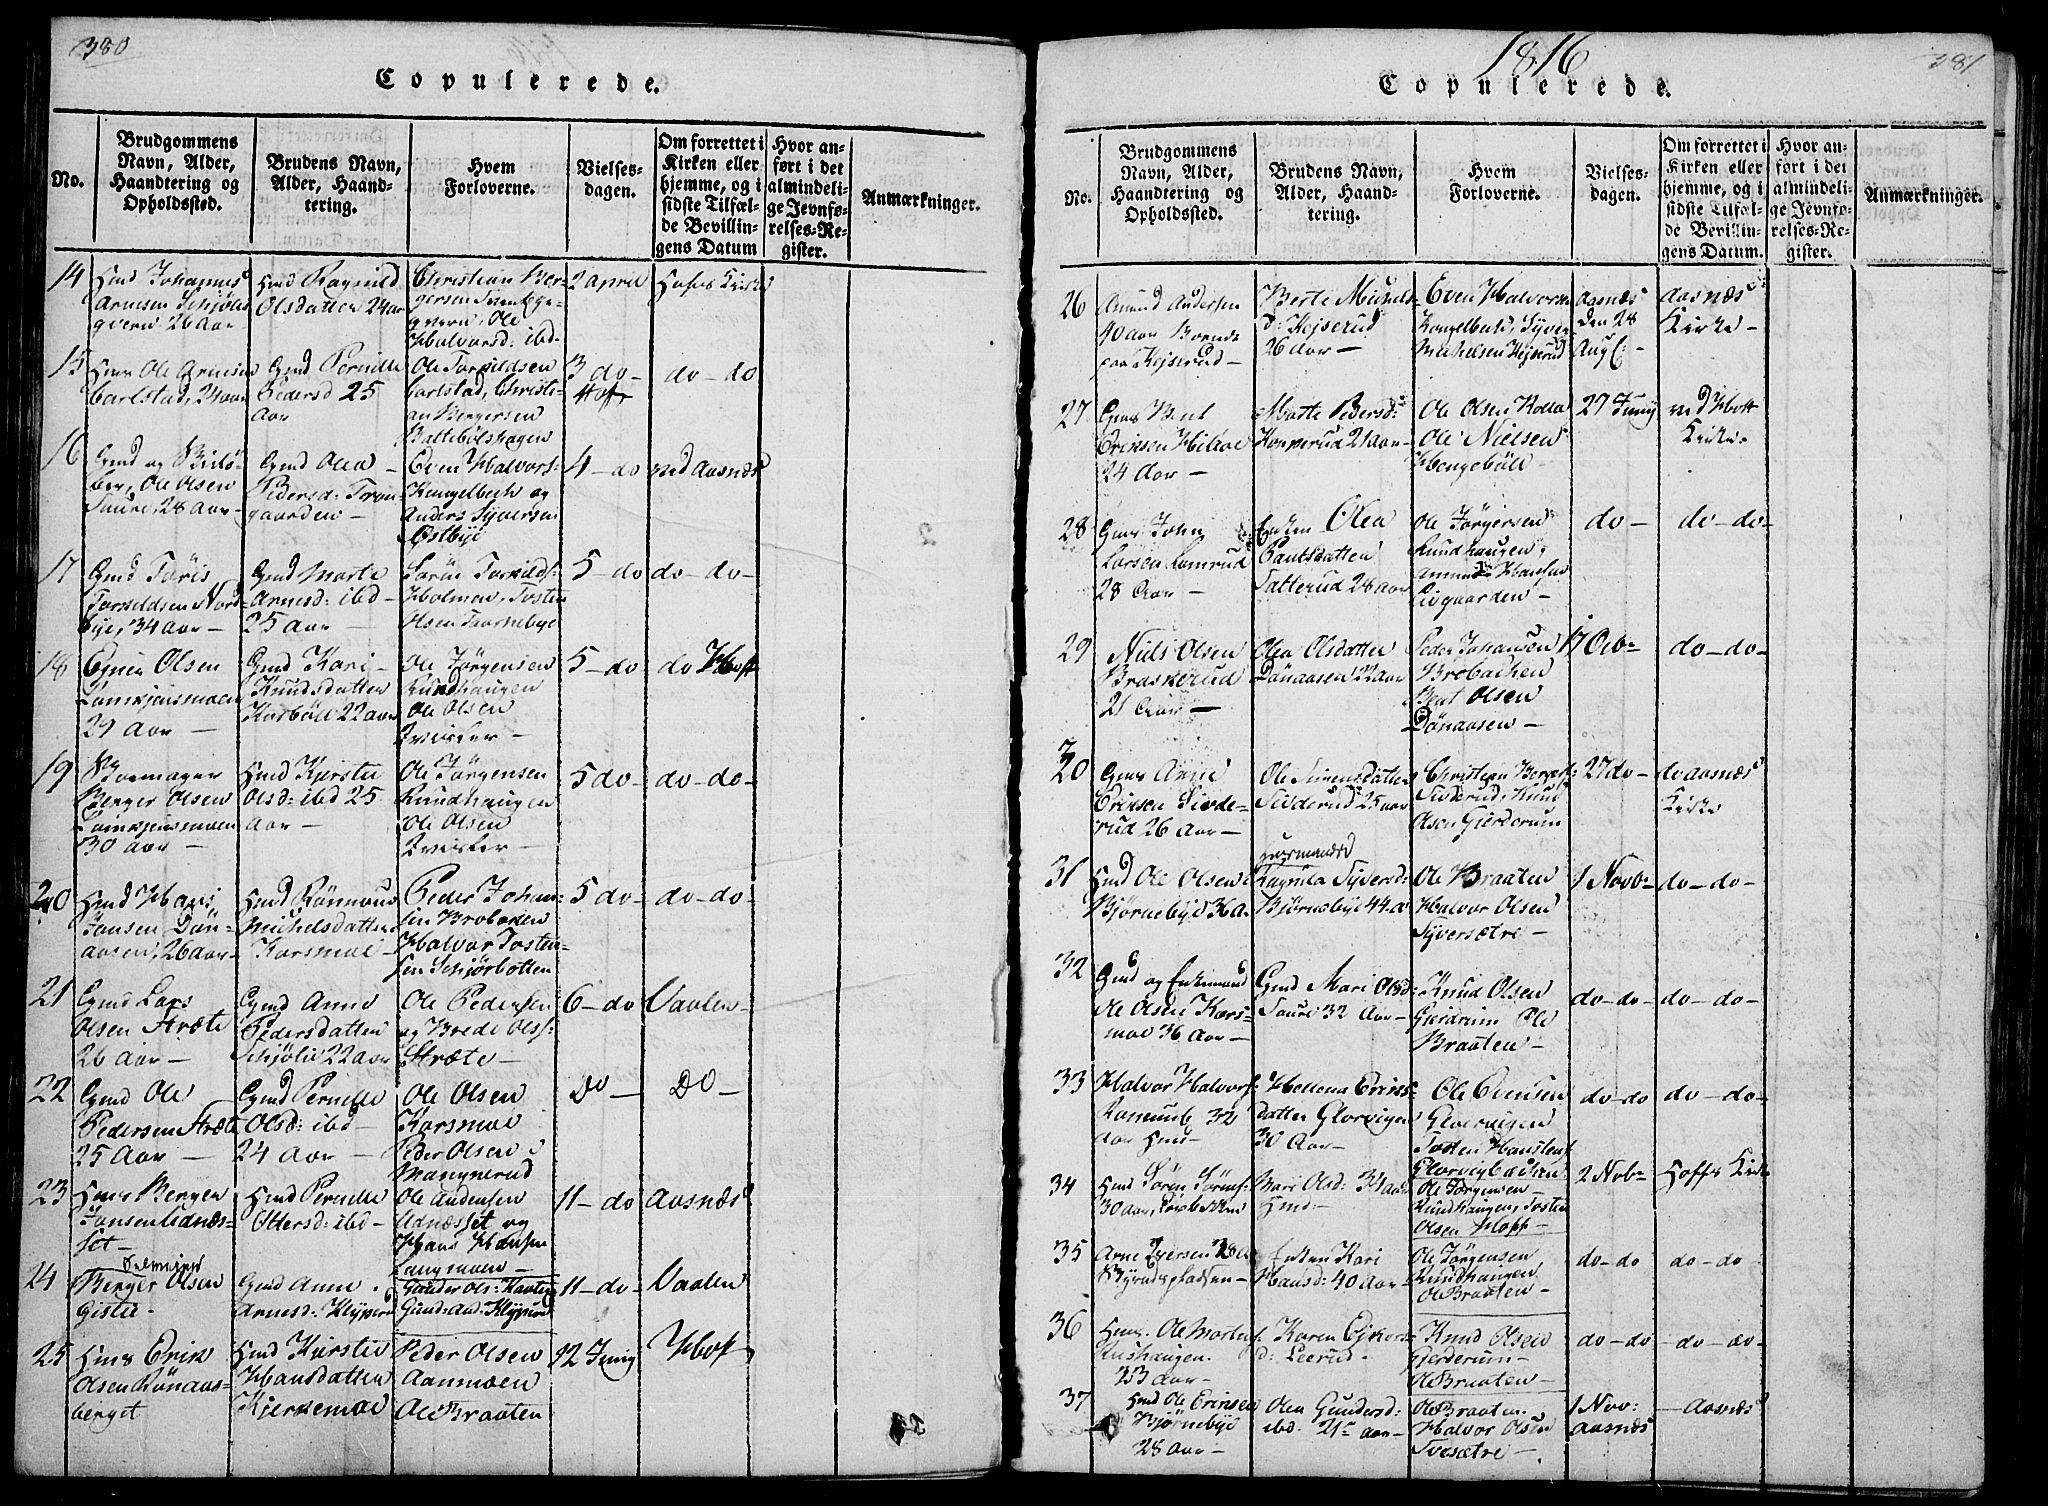 380
Copulerede.
No.
Brudgommens
Navn, Alder,
Haandtering og
Opholdssted.
Brudens Navn,
Alder, Haand-
tering.
Hvem
Forloverne.
Vielses-
dagen.
Om forrettet i
Kirken eller
hjemme, og i
sidste Tilfæl-
de Bevillin-
gens Datum
Hvor an-
ført i det
almindeli-
ge Jevnfø-
relses-Re-
gister.
Anmærkninger.
14
Johannes
Arnesen
26 Aar
Olsdatter 24 aar
Christian Ber-
gersen
Ole
Halvorsd: ibd-
2 April
Hofs Kirke
15
Ole Arnesen
Carlstad, 24 aar
Gmd Pernille
Pedersd 25
Aar
Ole Torkildsen
Carlstad, Christi-
an Bergersen
Battebölshagen
3 do-
Hoff
do-do
16
Gmd og
Ole Olsen
28 Aar-
Gmd Olea
Pedersd: Tron-
gaarden-
Even Halvors-
Kongelbech og
Anders Syversen
Østbye
4-do
ved Aasnæs
17
Gmd Töris
Torkildsen Nord-
bye, 34 aar-
Gmd Marte
Arnesd: ibd-
25 aar-
Sörin Torkilds:
Holmen, Tosten
Olsen
5-do
do-do-
18
Olsen
24 Aar-
Gmd Kari-
Knudsdatter
Korböll 22 aar
Ole Jörgensen
Rundhaugen
Ole Olsen
5-do
do Hoff
19
Berger Olsen
30 Aar-
Hmd Kjersti
Olsd: ibd 25
Aar-
Ole Jörgensen
Rundhaugen
Ole Olsen
5 do-
do-do-
20
Hmd Hans
Jonsen Dön-
aasen, 26 aar-
Hmd Rönnoug
Michelsdatter
Korsmoe-
Peder Johan-
sen Brobakken
Halvor Tosten-
sen Schjörbotten
5 do-
do-do-
21
Gmd Lars
Olsen Stræte
26 Aar-
Gmd Anne
Pedersdatter
Schjölie 22 aar
Ole Pedersen
og Brede Ols:
Stræte-
6-do
Vaalen-
22
Gmd Ole
Pedersen Stræte
25 Aar-
Gmd Pernille
Olsd: ibd-
24 Aar-
Ole Olsen
Korsmoe
Peder Olsen
Mangnerud
Do-
Do-
23
Hmd Berger
Jonsen Udnæs-
set-
Hmd Pernille
Ottersd: ibd-
Ole Andersen
Udnæsset og
Hans Hansen
Langmoen-
11-do
Aasnæs
24
Berger Olsen
Gistie-
Gmd Anne
Arnesd:
Gunder Ols:
Gund: And:
11-do-
Vaalen
25
Hmd Erik
Olsen Rönaas-
berget
Hmd Kirstie
Hansdatter
Kjernemoe
Peder Olsen
Aanmoen
Ole Braaten
12 Juny
Hof
1816
381
Copulerede.
No.
Brudgommens
Navn, Alder,
Haandtering og
Opholdssted.
Brudens Navn,
Alder, Haand-
tering.
Hvem
Forloverne.
Vielses-
dagen.
Om forrettet i
Kirken eller
hjemme, og i
sidste Tilfæl-
de Bevillin-
gens Datum.
Hvor an-
ført i det
almindeli-
ge Jevnfø-
relses-Re-
gister.
Anmærkninger.
26
Amund Andersen
40 aar Boende
paa Kejserud-
Berte Michels-
d: Kejserud
26 Aar-
Even Halvorsen
Kongelbech, Syver
Michelsen Kejserud
Aasnæs
den 28
Aug:
Aasnæs
Kirke-
27
Gmd Bent
Eriksen
24 Aar-
Marte Pedersd:
Kopperud 21 aar-
Ole Olsen Kolla
Ole Nielsen
Hengeböll-
27 Juny
ved Hoff
Kirke.
28
Gmd John
Larsen Ramrud
28 Aar-
Enken Olea
Poulsdatter
Satterud 28 aar
Ole Jörgensen
Rundhaugen,
Amund Hansen
Livgaarden-
do-
do-do-
29
Niels Olsen
Braskerud
21 Aar-
Olea Olsdatter
Dönaasen 22 aar
Peder Johansen
Brobachen
Bent Olsen
Dönaasen-
17 Octb-
do-do-
30
Gmd Arne
Eriksen Sivde-
rud 26 Aar-
Ole Simensdatter
Sivderud 25 aar
Christian Berg:
Sivderud, Knud
Olsen Gjerderum
27 do-
do Aasnæs
Kirke
31
Hmd Ole Olsen
Bjørnebye 36 a.
huusmands
Ragnild Syversd:
Bjørnebye 44 a
Ole Braaten
Halvor Olsen
Syversætre-
1 Novb-
do-do-
32
Gmd og Enkemand
Ole Olsen Kors-
moe 36 Aar-
Gmd Mari Olsd:
32 Aar-
Knud Olsen
Gjerdrum Ole
Braaten-
do-do-
do-do-
33
Halvor Halvors:
32
Aar Hmd-
Hellena Eriks-
datter Glorvigen
30 Aar-
Ole Evensen
Glorvigen
Tosten Hansen
Glorvigbachen
do-do
do-do-
34
Hmd Sörin Sörins:
30 aar,
Mari Olsd: 34 aar
Hmd-
Ole Jörgensen-
Rundhaugen, Tosten
Olsen Hoff-
2 Nob-
Hoffs Kirke
35
Arne Iversen 28 a
Enken Kari
Hansd: 40 Aar-
Ole Jörgensen
Rundhaugen
Ole Braaten-
do-do
do-do-
36
Hmd. Ole Mortens:
Rushaugen.
23 aar-
Karen Ejkors-
d: Leerud-
Knud Olsen
Gjerderum-
Ole Braaten-
do-do
-do-do-
37
Hmd Ole Eriksen
Bjørnebye
28 Aar-
Olea Gundersd:
ibd. 21 aar-
Ole Braaten.
Halvor Olsen
Svesætre-
1 Nov:
Aasnæs
-Aasnæs